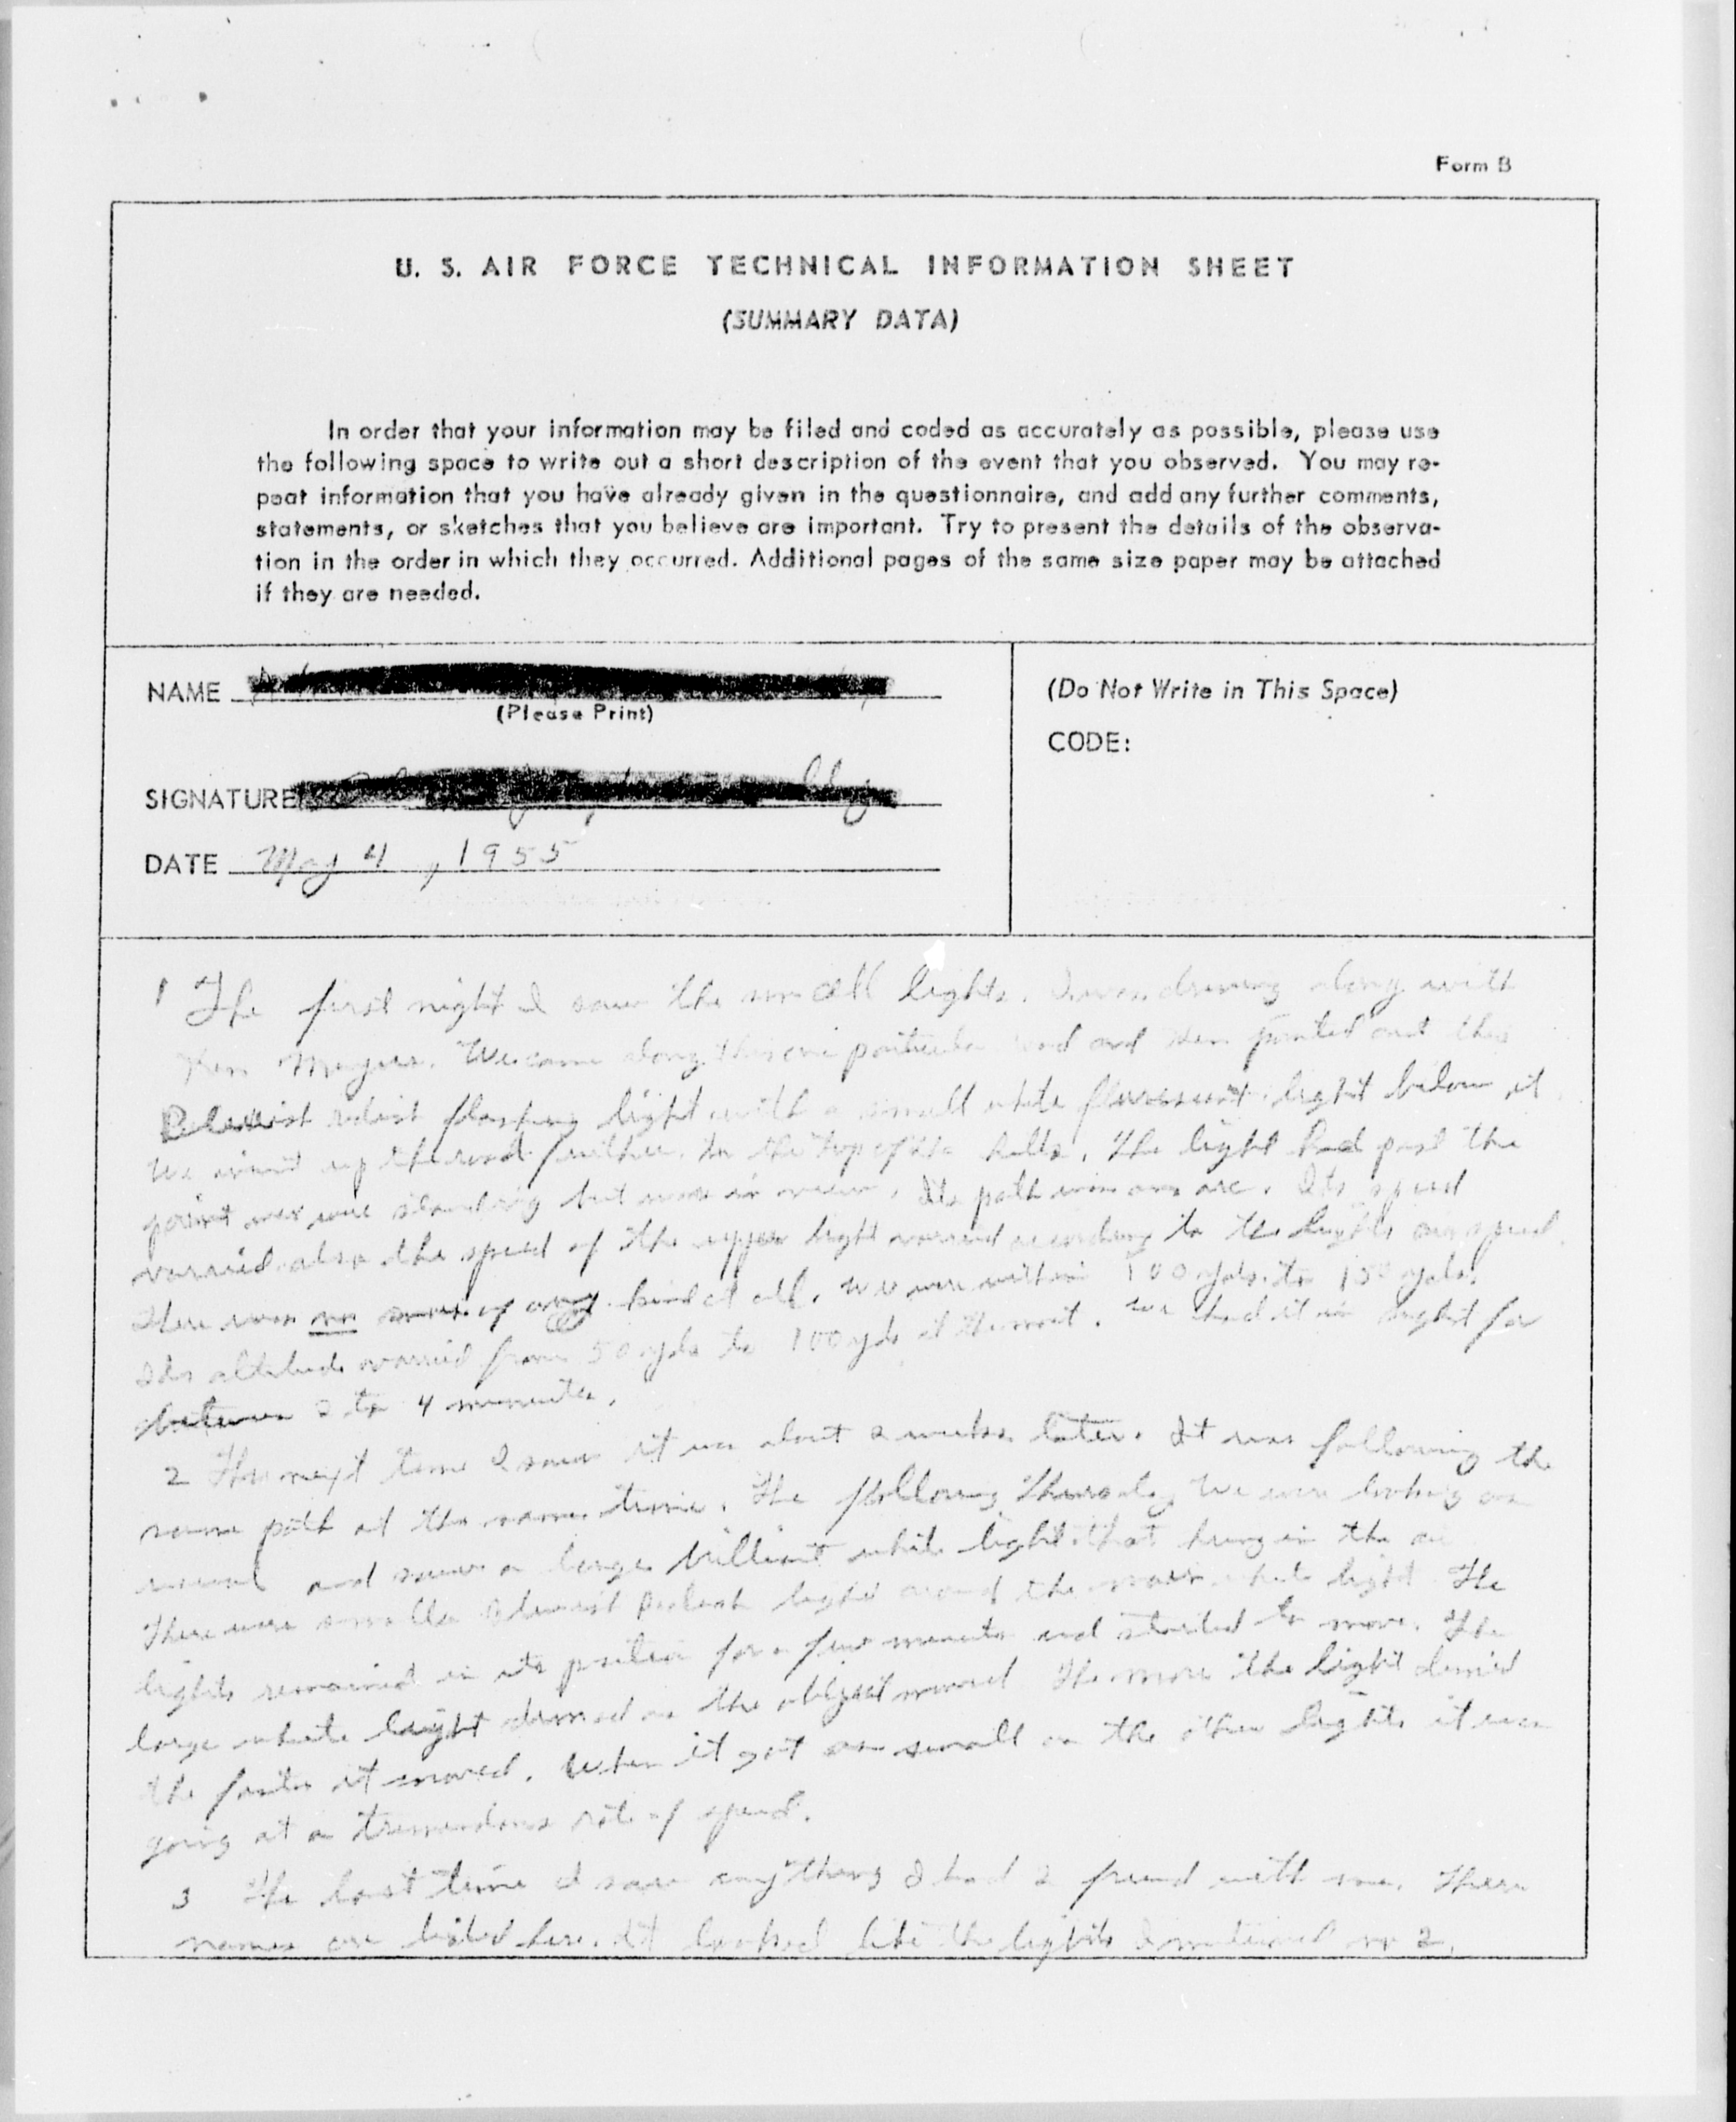 Form B
U. S. AIR FORCE TECHNICAL INFORMATION SHEET
(SUMMARY DATA)
In order that your information may be filed and coded as accurately as possible, please use
the following space to write out a short description of the event that you observed. You may re-
peat information that you have already given in the questionnaire, and add any further comments,
statements, or sketches that you believe are important. Try to present the details of the observa-
tion in the order in which they occurred. Additional pages of the same size paper may be attached
if they are needed.
NAME
(Please Print)
SIGNATURE
DATE May 4, 1955
(Do Not Write in This Space)
CODE:
1 The first night I saw the small lights. I was driving along with
Ken We came along this one particular road and Ken pointed out this
flashing light with a small white light below it.
We went up the road further to the top of the hills. The light had past the
point we were standing but was in view. Its path was an arc. Its speed
varried also the speed of the upper light varried according to the lights own speed.
There was no of any kind at all. We were within 100 yds. to 150 yds.
Its altitude varried from 50 yds to 100 yds at the most. We had it in sight for
between 2 to 4 minutes.
2 The next time I saw it was about 2 weeks later. It was following the
same path at the same time. The following Thursday we were looking as
usual and saw a large brilliant white light that hung in the air
There were smaller light around the main white light The
lights remained in its position for a few minutes and started to move. The
large white light dimmed as the object moved The more the light dimmed
the faster it moved. When it got as small as the other lights it was
going at a tremendous rate of speed.
3 The last time I saw anything I had 2 friend with me. There
names are listed here. It looked like the lights I mentioned in 2.